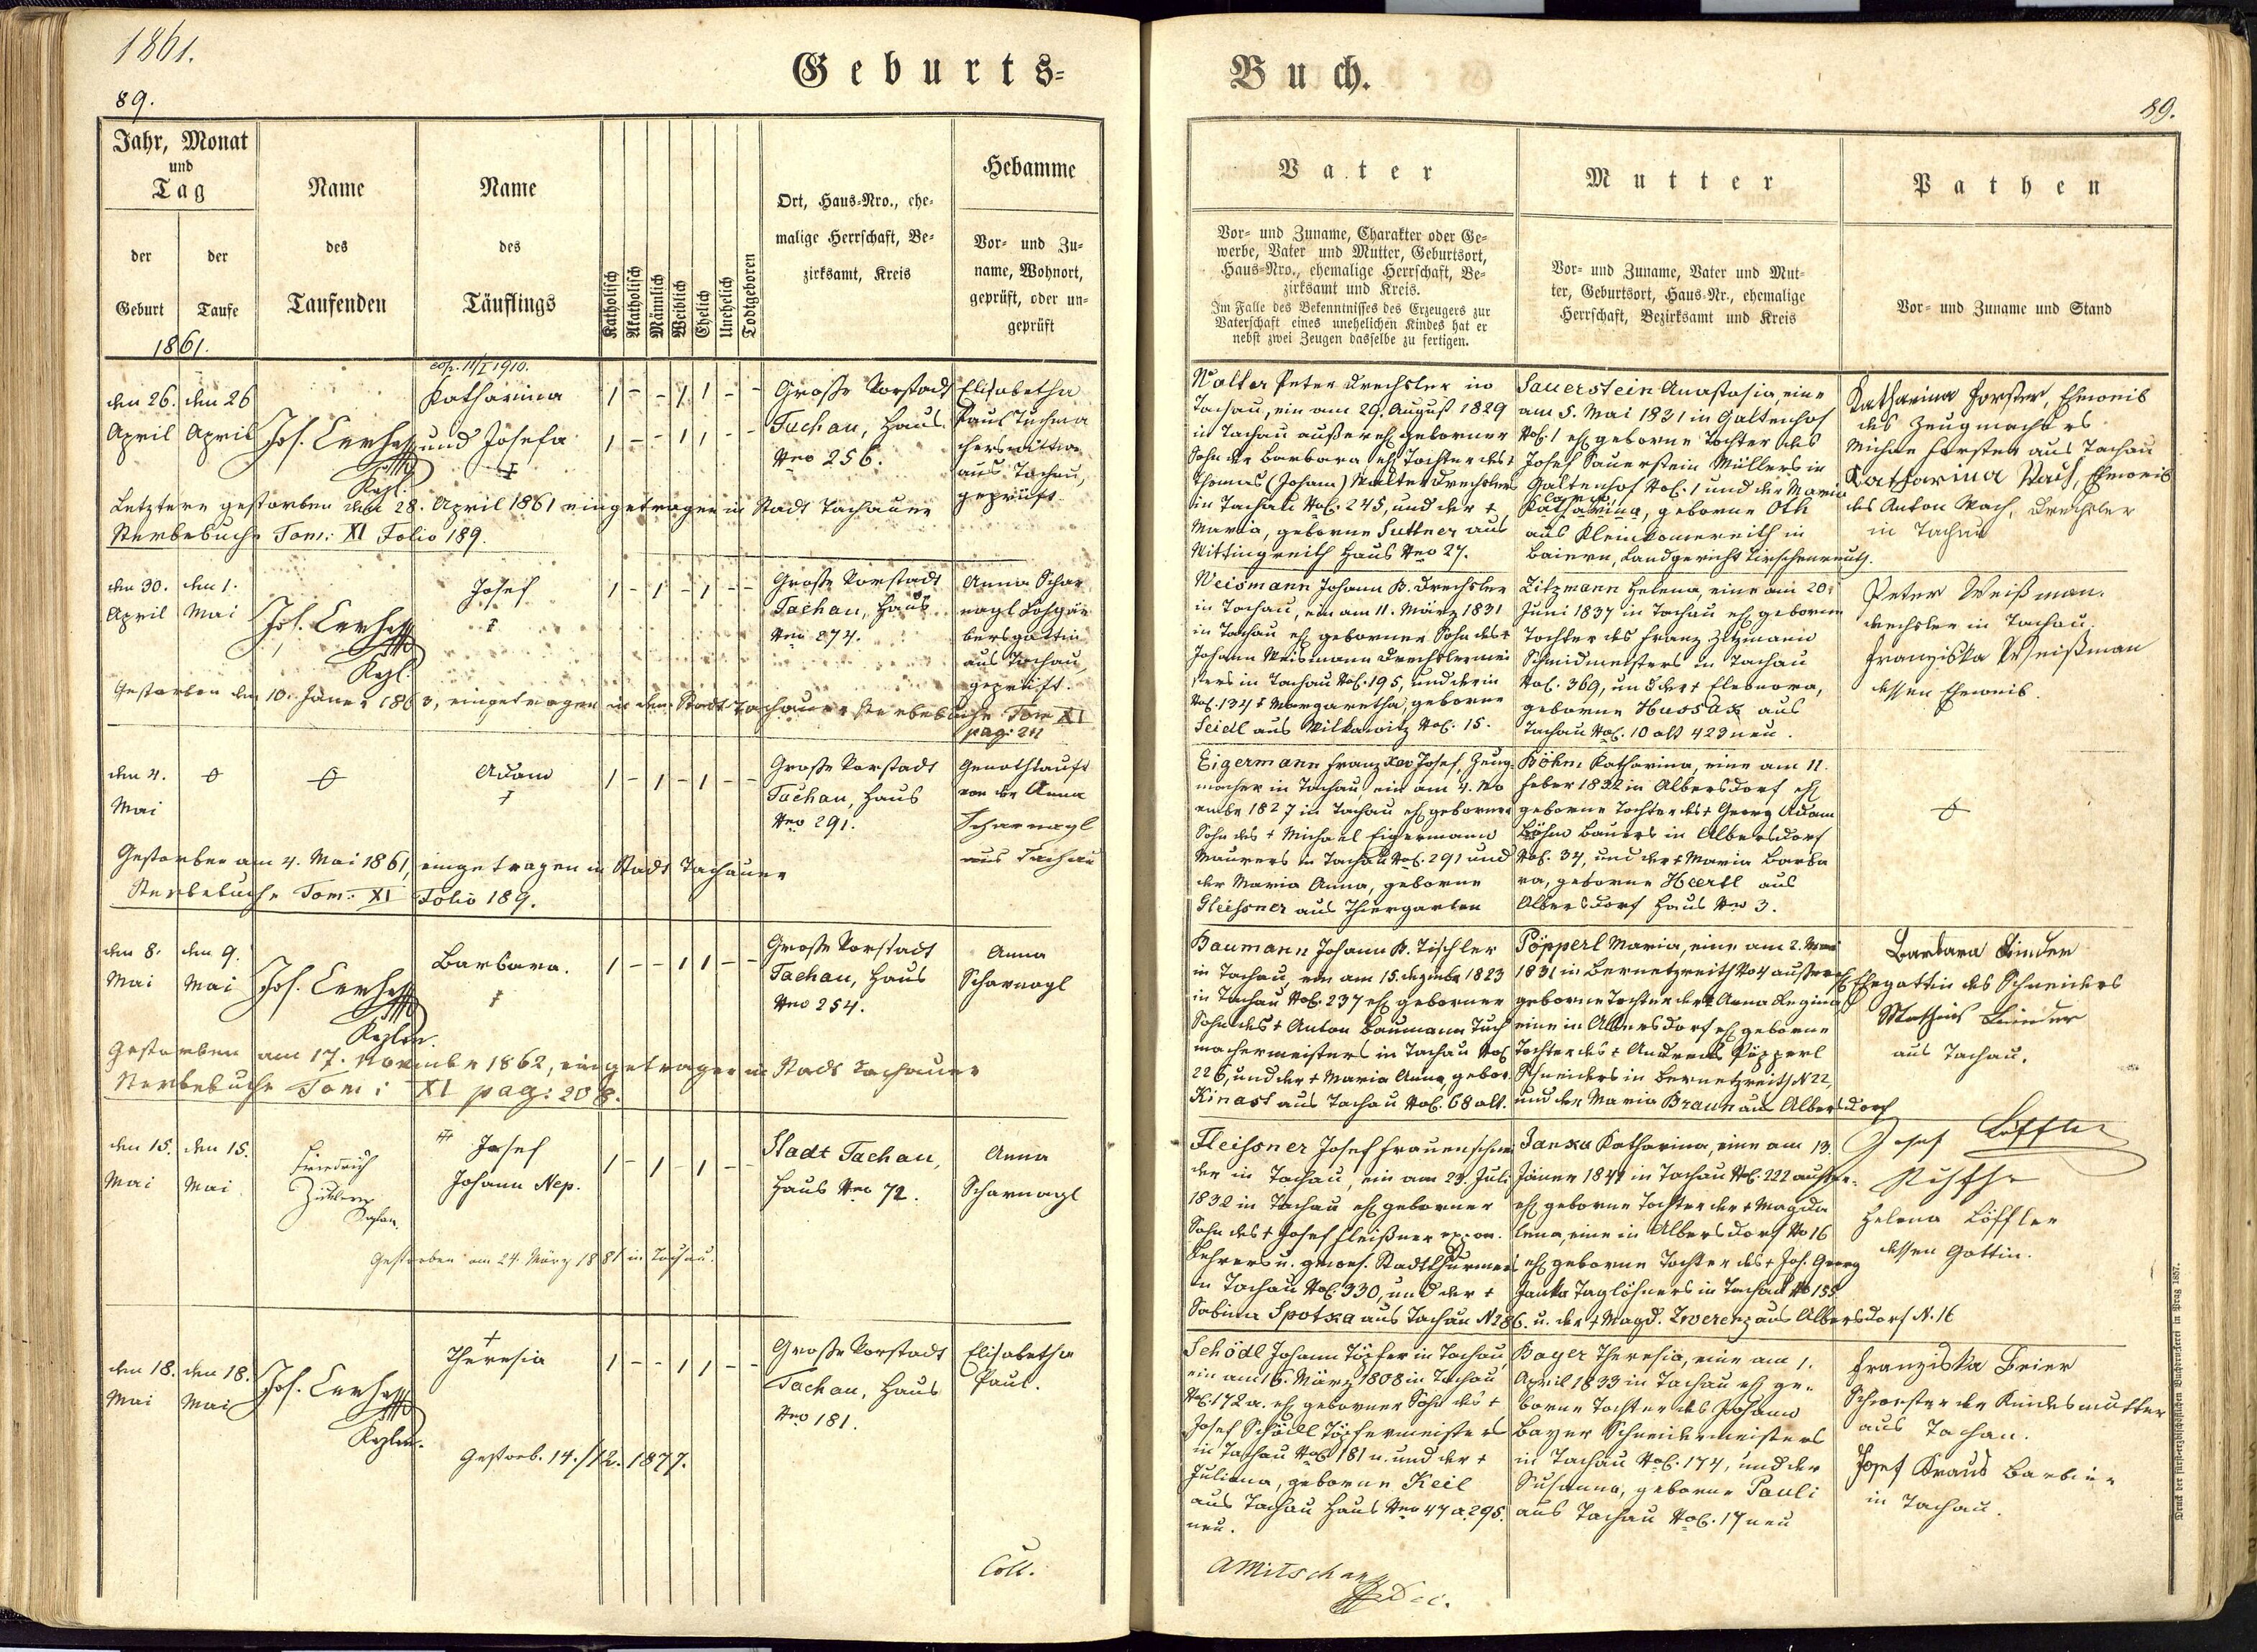 1861.
89.
Geburts-
Jahr, Monat
und
Tag
der
Geburt
der
Taufe
1861.
Name
des
Taufenden
Name
des
Täuflings
Katholisch
Akatholisch
Männlich
Weiblich
Ehelich
Unehelich
Todtgeboren
Ort, Haus-Nro., ehe-
malige Herrschaft, Be-
zirksamt, Kreis
Hebamme
Vor- und Zu-
name, Wohnort,
geprüft, oder un-
geprüft
cop. 11/I 1910.
den 26. den 26
April April
Jos.
Kpl.
Katharina
und Josefa
†
1 - - 1 1 - -
1 - - 1 1 - -
Große Vorstadt
Tachau, Haus
Nro 256.
Elisabetha
Paul Tuchma
cherswittwe
aus Tachau,
geprüft
Letztere gestorben den 28. April 1861 eingetragen in Stadt Tachauer
Sterbebuche Tom: XI Folio 189.
den 30. den 1.
April Mai
Jos.
Kpl.
Josef
†
1 - 1 - 1 - -
Große Vorstadt
Tachau, Haus
Nro 274.
Anna Schar
nagl
aus Tachau,
geprüft.
Gestorben den 10. Jäner 1863, eingetragen in dem Stadt Tachauer Sterbebuche Tom XI
pag: 211
den 4.
Mai
Adam
†
1 - 1 - 1 - -
Große Vorstadt
Tachau, Haus
Nro 291.
Genothtauft
von der Anna
Scharnagl
aus Tachau
Gestorben am 4. Mai 1861, eingetragen in Stadt Tachauer
Sterbebuche Tom: XI Folio 189.
den 8. den 9.
Mai Mai
Jos.
Kaplan.
Barbara.
†
1 - - 1 1 - -
Große Vorstadt
Tachau, Haus
Nro 254.
Anna
Scharnagl
Gestorben am 17. November 1862, eingetragen in Stadt Tachauer
Sterbebuche Tom: XI pag: 208.
den 15. den 15.
Mai Mai
Friedrich
Kaplan.
Josef
Johann Nep.
1 - 1 - 1 - -
Stadt Tachau,
Haus Nro 72.
Anna
Scharnagl
Gestorben am 24. März 1881 in Tachau.
den 18. den 18.
Mai Mai
Jos.
Kaplan.
†
Theresia
1 - - 1 1 - -
Große Vorstadt
Tachau, Haus
Nro 181.
Elisabetha
Paul.
Gestorb. 14./12. 1877.
Coll.
Buch.
89.
Vater
Vor- und Zuname, Charakter oder Ge-
werbe, Vater und Mutter, Geburtsort,
Haus-Nro., ehemalige Herrschaft, Be-
zirksamt und Kreis.
Im Falle des Bekenntnisses des Erzeugers zur
Vaterschaft eines unehelichen Kindes hat er
nebst zwei Zeugen dasselbe zu fertigen.
Mutter
Vor- und Zuname, Vater und Mut-
ter, Geburtsort, Haus-Nr., ehemalige
Herrschaft, Bezirksamt und Kreis
Pathen
Vor- und Zuname und Stand
Walter Peter Drechsler in
Tachau, ein am 29. August 1829
in Tachau außerehl geborner
Sohn der Barbara ehl Tochter des †
Thomas (Johann) Walter Drechslers
in Tachau NoC. 245, und der †
Maria, geborne Suttner aus
Wittingreith Haus Nro 27.
Sauerstein Anastasia, eine
am 5. Mai 1831 in Galtenhof
NoC. 1 ehl geborne Tochter des
Josef Sauerstein Müllers in
Galtenhof NoC. 1 und der Maria
Katharina, geborne Oth
aus Kleinkonreuth in
Baiern, Landgericht Tirschenreuth.
Katharina Forster, Eheweib
des Zeugmachers
Michael Forster aus Tachau
Katharina Wach, Eheweib
des Anton Wach, Drechsler
in Tachau
Weismann Johann B. Drechsler
in Tachau, ein am 11. März 1831
in Tachau ehl geborner Sohn des †
Johann Weismann Drechslermei
sters in Tachau NoC. 195, und der in
NoC. 134 † Margaretha, geborne
Seidl aus Milkawitz NoC. 15.
Zitzmann Helena, eine am 20.
Juni 1837 in Tachau ehl geborne
Tochter des Franz Zitzmann
Schmidmeisters in Tachau
NoC. 369, und der † Eleonora,
geborne Hussak aus
Tachau NoC. 10 alt 423 neu.
Peter Weißman.
Drechsler in Tachau.
Franziska Weißman
dessen Eheweib.
Eigermann Franz Xav Josef, Zeug-
macher in Tachau, ein am 4. No
vember 1827 in Tachau ehl geborner
Sohn des † Michael Eigermann
Maurers in Tachau NoC. 291 und
der Maria Anna, geborne
Gleissner aus Thiergarten
Böhm Katharina, eine am 11.
Feber 1832 in Albersdorf ehl
geborne Tochter des † Georg Adam
Böhm Bauers in Albersdorf
NoC. 34, und der † Maria Barba
ra, geborne Heertl aus
Albersdorf Haus Nro 3.
Baumann Johann B. Tischler
in Tachau, ein am 15. Dezember 1823
in Tachau NoC. 237 ehl geborner
Sohn des † Anton Baumann Tuch
machermeisters in Tachau NoC
226, und der † Maria Anna, gebor.
Kinast aus Tachau NoC. 68 alt.
Pöpperl Maria, eine am 2. Mai
1831 in Bernetzreith No 4 außerehl
geborne Tochter der † Anna Regina
eine in Albersdorf ehl geborne
Tochter des † Andreas Pöpperl
Schneiders in Bernetzreith N 22,
und der Maria Braun aus Albersdorf
Barbara Binder
Ehegattin des Schneiders
Mathias Binder
aus Tachau.
Fleissner Josef Frauenschnei
der in Tachau, ein am 23. Juli
1832 in Tachau ehl geborner
Sohn des † Josef Fleißner
Lehrers u. gewes. Stadtthurmers
in Tachau NoC. 330, und der †
Sabina Spotka aus Tachau N 286.
Janka Katharina, eine am 13.
Jäner 1841 in Tachau NoC. 222 außer-
ehl geborne Tochter der † Magda
lena, eine in Albersdorf No 16
ehl geborne Tochter des † Joh. Georg
Janka Taglöhners in Tachau No 155
u. der † Magd. Zwerenz aus Albersdorf N. 16
Josef Löffler
Helena Löffler
dessen Gattin.
Schödl Johann Töpfer in Tachau,
ein am 16. März 1808 in Tachau
NoC. 172 a. ehl geborner Sohn des †
Josef Schödl Töpfermeisters
in Tachau NoC 181 n. und der †
Juliana, geborne Keil
aus Tachau Haus Nro 47 a. 295.
neu.
Bayer Theresia, eine am 1.
April 1833 in Tachau ehl ge-
borne Tochter des Johann
Bayer Schneidermeisters
in Tachau NoC. 174, und der
Susanna, geborne Pauli
aus Tachau NoC. 17 neu
Franziska Beier
Schwester der Kindesmutter
aus Tachau.
Josef Kraus Barbier
in Tachau.
AMitschan
Dec.
Druck der fürst-erzbischöflichen Buchdruckerei in Prag 1857.